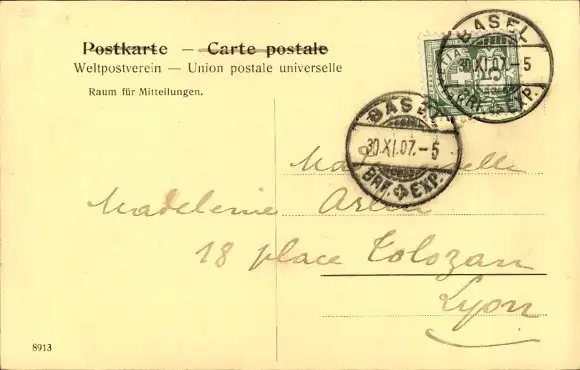 Postkarte — Carte postale
Weltpostverein — Union postale universelle
Raum für Mitteilungen.
BASEL
30.XI.07.-5
BRF. EXP.
BASEL
30.XI.07.-5
BRF. EXP.
Mademoiselle
Madeleine
18 place Tolozan
Lyon
8913